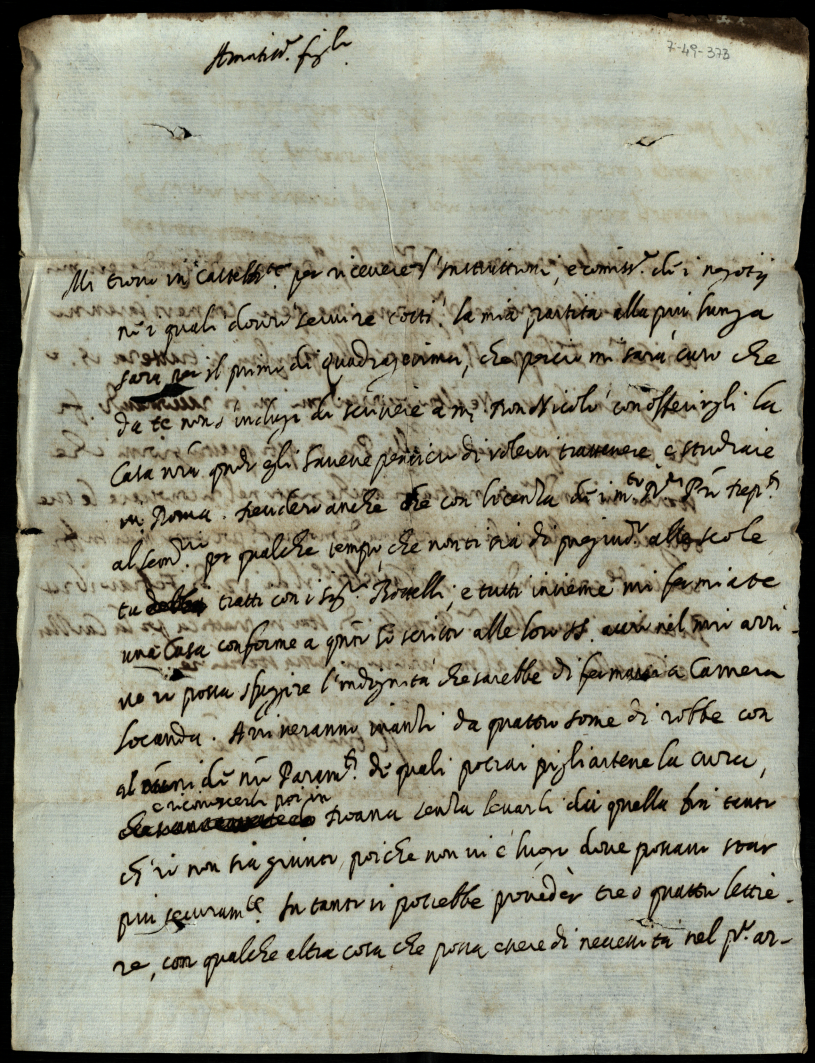 Amatiss.º figlio
7-49-373
Mi trovo in Castell.te per ricevere l'Instruttioni, e comiss.i de i negotij
ne i quali dovrò servire costì. la mia partita alla più lunga
sarà per il primo di quadragesima, che perciò mi sarà caro che
da te non s'indugi di scrivere a m. Don Nicolò con offerirgli la
Casa nra qndo egli havesse pensiero di volervi trattenere e studiare
in Roma. Desidero anche che con licenza de i m.to R.di Pri
al sem.rio per qualche tempo, che non ti sia di pregiud.o alle scole
tu tratti con i Sig.ri Rostelli, e tutti insieme mi fermiate
una Casa conforme a qnto ho scritto alle loro SS. acciò nel mio arri-
vo io possa sfuggire l'indignità che sarebbe di fermarsi a Camera
locanda. Arriveranno inanzi da quattro some di robbe con
alcuni de nri Param.ti de quali potrai pigliartene la cura,
e riconoscerli poi in
Doana senza levarli da quella fin tanto
ch'io non sia giunto, poiche non vi è luogo dove possano star
più securam.te In tanto si potrebbe proveder tre o quattro lettie-
re, con qualche altra cosa che possa essere di necessità nel p.o ar-